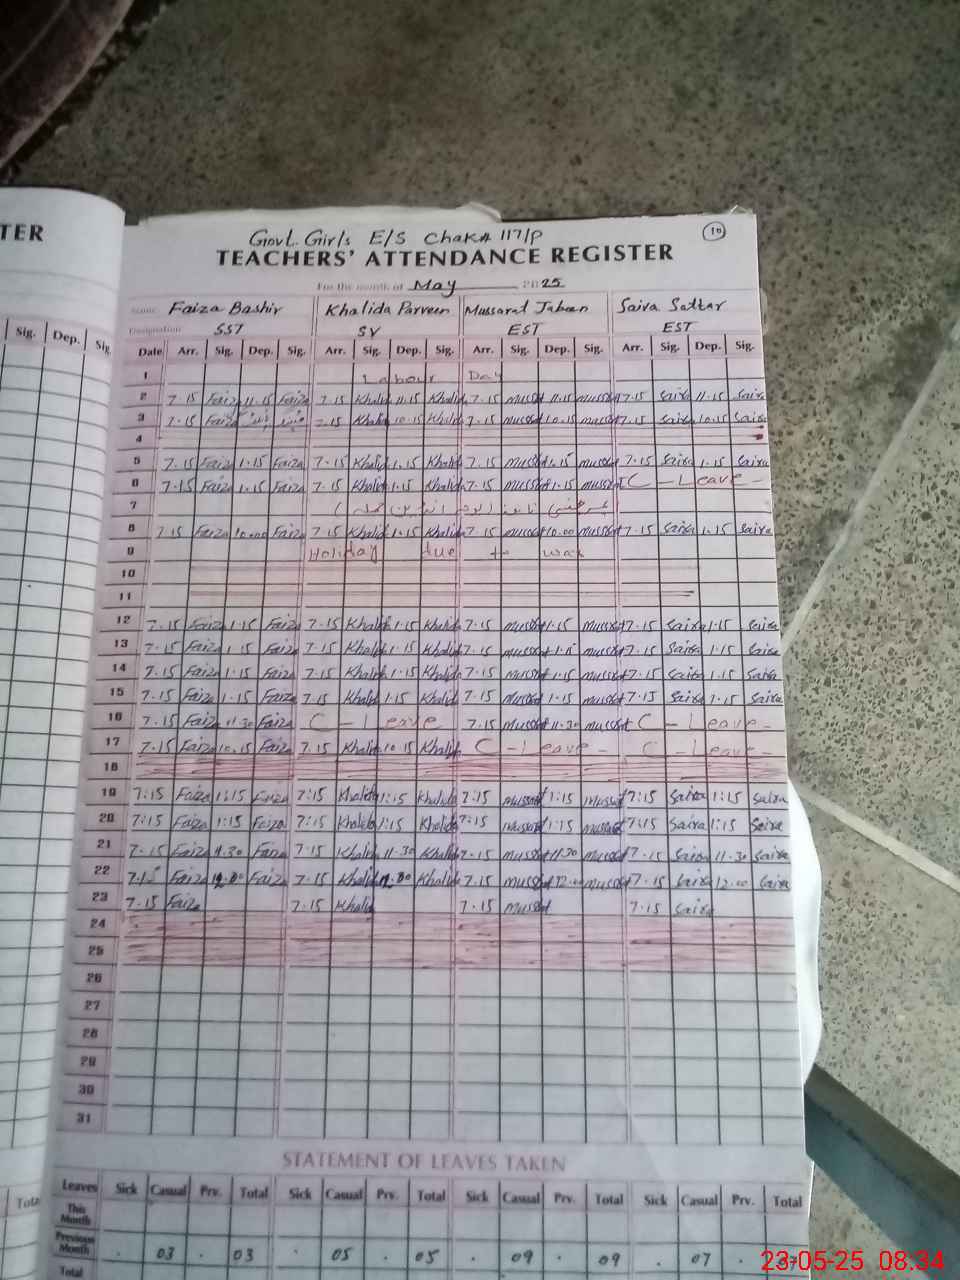 TER
Govt. Girls E/S Chak# 117/P
10
TEACHERS' ATTENDANCE REGISTER
For the month of May 2025
Name Faiza Bashir Khalida Parveen Mussarat Jabeen Saira Sattar
Designation SST SV EST EST
Sig. Dep. Sig.
Date Arr. Sig. Dep. Sig. Arr. Sig. Dep. Sig. Arr. Sig. Dep. Sig. Arr. Sig. Dep. Sig.
1 Labour Day
2 7.15 Faiza 11.15 Faiza 7.15 Khalid 11.15 Khalid 7.15 mussrat 11.15 mussrat 7.15 Saira 11.15 Saira
3 7.15 Faiza 7.15 Khalid 10.15 Khalid 7.15 mussrat 10.15 mussrat 7.15 Saira 10.15 Saira
4
5 7.15 Faiza 1.15 Faiza 7.15 Khalid 1.15 Khalid 7.15 mussrat 1.15 mussrat 7.15 Saira 1.15 Saira
6 7.15 Faiza 1.15 Faiza 7.15 Khalid 1.15 Khalid 7.15 mussrat 1.15 mussrat C - Leave -
7
8 7.15 Faiza 10.00 Faiza 7.15 Khalid 1.15 Khalid 7.15 mussrat 10.00 mussrat 7.15 Saira 1.15 Saira
9 Holiday due to war
10
11
12 7.15 Faiza 1.15 Faiza 7.15 Khalid 1.15 Khalid 7.15 mussrat 1.15 mussrat 7.15 Saira 1.15 Saira
13 7.15 Faiza 1.15 Faiza 7.15 Khalid 1.15 Khalid 7.15 mussrat 1.15 mussrat 7.15 Saira 1.15 Saira
14 7.15 Faiza 1.15 Faiza 7.15 Khalid 1.15 Khalid 7.15 mussrat 1.15 mussrat 7.15 Saira 1.15 Saira
15 7.15 Faiza 1.15 Faiza 7.15 Khalid 1.15 Khalid 7.15 mussrat 1.15 mussrat 7.15 Saira 1.15 Saira
16 7.15 Faiza 11.30 Faiza C - Leave 7.15 mussrat 11.30 mussrat C - Leave -
17 7.15 Faiza 10.15 Faiza 7.15 Khalid 10.15 Khalid C - Leave - C - Leave -
18
19 7:15 Faiza 1:15 Faiza 7:15 Khalida 1:15 Khalida 7:15 mussrat 1:15 mussrat 7:15 Saira 1:15 Saira
20 7:15 Faiza 1:15 Faiza 7:15 Khalida 1:15 Khalida 7:15 mussrat 1:15 mussrat 7:15 Saira 1:15 Saira
21 7.15 Faiza 11.30 Faiza 7.15 Khalid 11.30 Khalid 7.15 mussrat 11.30 mussrat 7.15 Saira 11.30 Saira
22 7.15 Faiza 12.00 Faiza 7.15 Khalid 12.00 Khalid 7.15 mussrat 12.00 mussrat 7.15 Saira 12.00 Saira
23 7.15 Faiza 7.15 Khalid 7.15 mussrat 7.15 Saira
24
25
26
27
28
29
30
31
STATEMENT OF LEAVES TAKEN
Leaves Sick Casual Prv. Total Sick Casual Prv. Total Sick Casual Prv. Total Sick Casual Prv. Total
This Month
Previous Month . 03 . 03 . 05 . 05 . 09 . 09 . 07 .
Total
23-05-25 08:34